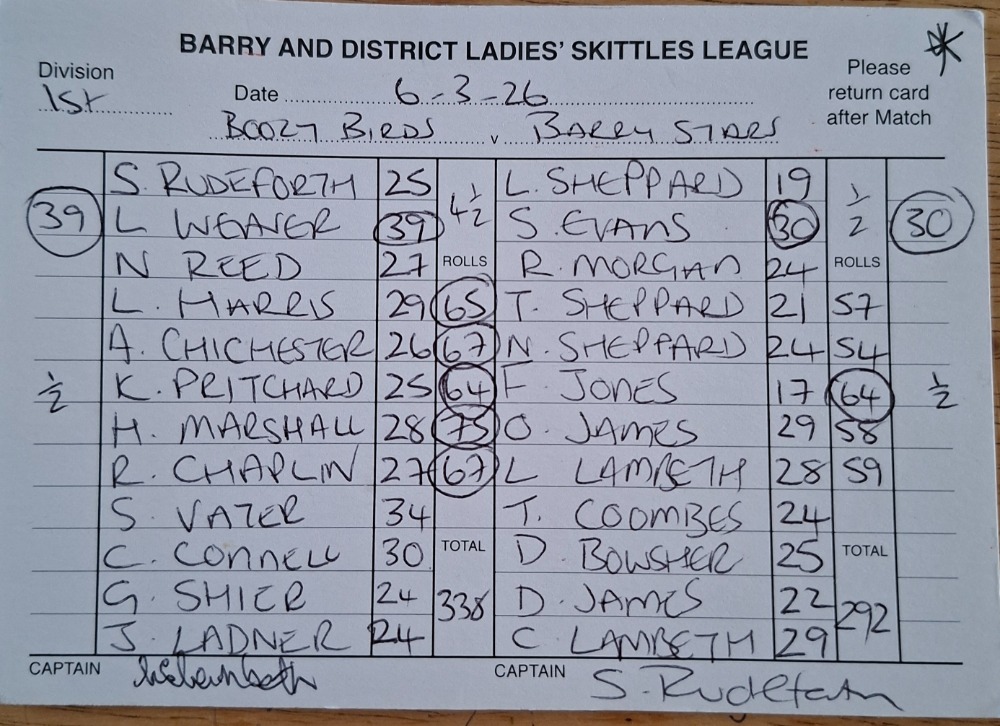 BARRY AND DISTRICT LADIES' SKITTLES LEAGUE
Division
1st
Date 6-3-26
Please
return card
after Match
BOOZY BIRDS v BARRY STARS
S. RUDEFORTH 25 4½ L. SHEPPARD 19 ½
39 L WEAVER 39 S. EVANS 30 30
N REED 27 ROLLS R. MORGAN 24 ROLLS
L. HARRIS 29 65 T. SHEPPARD 21 57
A. CHICHESTER 26 67 N. SHEPPARD 24 54
½ K. PRITCHARD 25 64 F JONES 17 64 ½
H. MARSHALL 28 75 O. JAMES 29 58
R. CHAPLIN 27 67 L LAMBETH 28 59
S. VATER 34 T. COOMBES 24
C. CONNELL 30 TOTAL D. BOWSHER 25 TOTAL
G. SHIER 24 338 D. JAMES 22 292
J. LADNER 24 C LAMBETH 29
CAPTAIN CAPTAIN S. Rudeforth